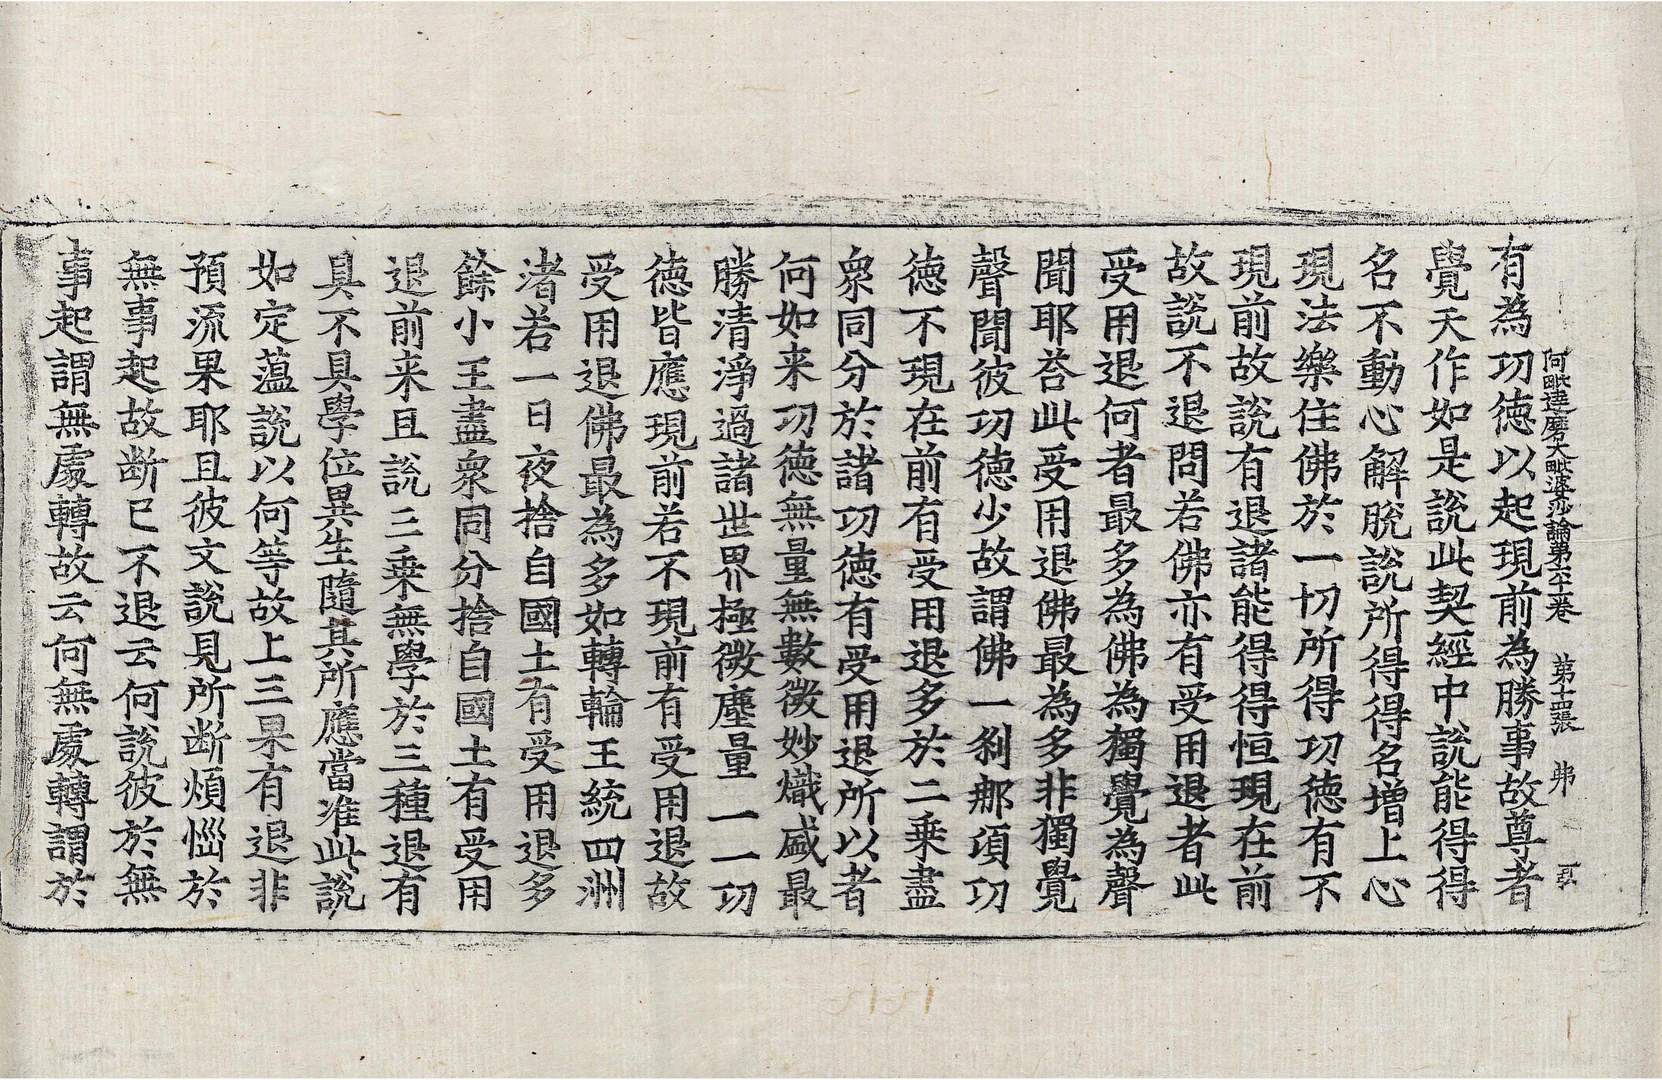 有為功徳以起現前為勝事故尊者
阿毗達磨大毗婆沙論第六十一卷 第十四張 弗
覺天作如是說此契經中說能得得
名不動心解脫說所得得名增上心
現法樂住佛於一切所得功徳有不
現前故說有退諸能得得恒現在前
故說不退問若佛亦有受用退者此
受用退何者最多為佛為獨覺為聲
聞耶荅此受用退佛最為多非獨覺
聲聞彼功徳少故謂佛一剎那頃功
徳不現在前有受用退多於二乗盡
衆同分於諸功徳有受用退所以者
何如来功徳無量無數微妙熾盛最
勝清淨過諸世界極微塵量一一功
徳皆應現前若不現前有受用退故
受用退佛最為多如轉輪王統四洲
渚若一日夜捨自國土有受用退多
餘小王盡衆同分捨自國土有受用
退前来且說三乗無學於三種退有
具不具學位異生隨其所應當准此說
如定蕰說以何等故上三果有退非
預流果耶且彼文說見所断煩惱於
無事起故断已不退云何說彼於無
事起謂無處轉故云何無處轉謂於